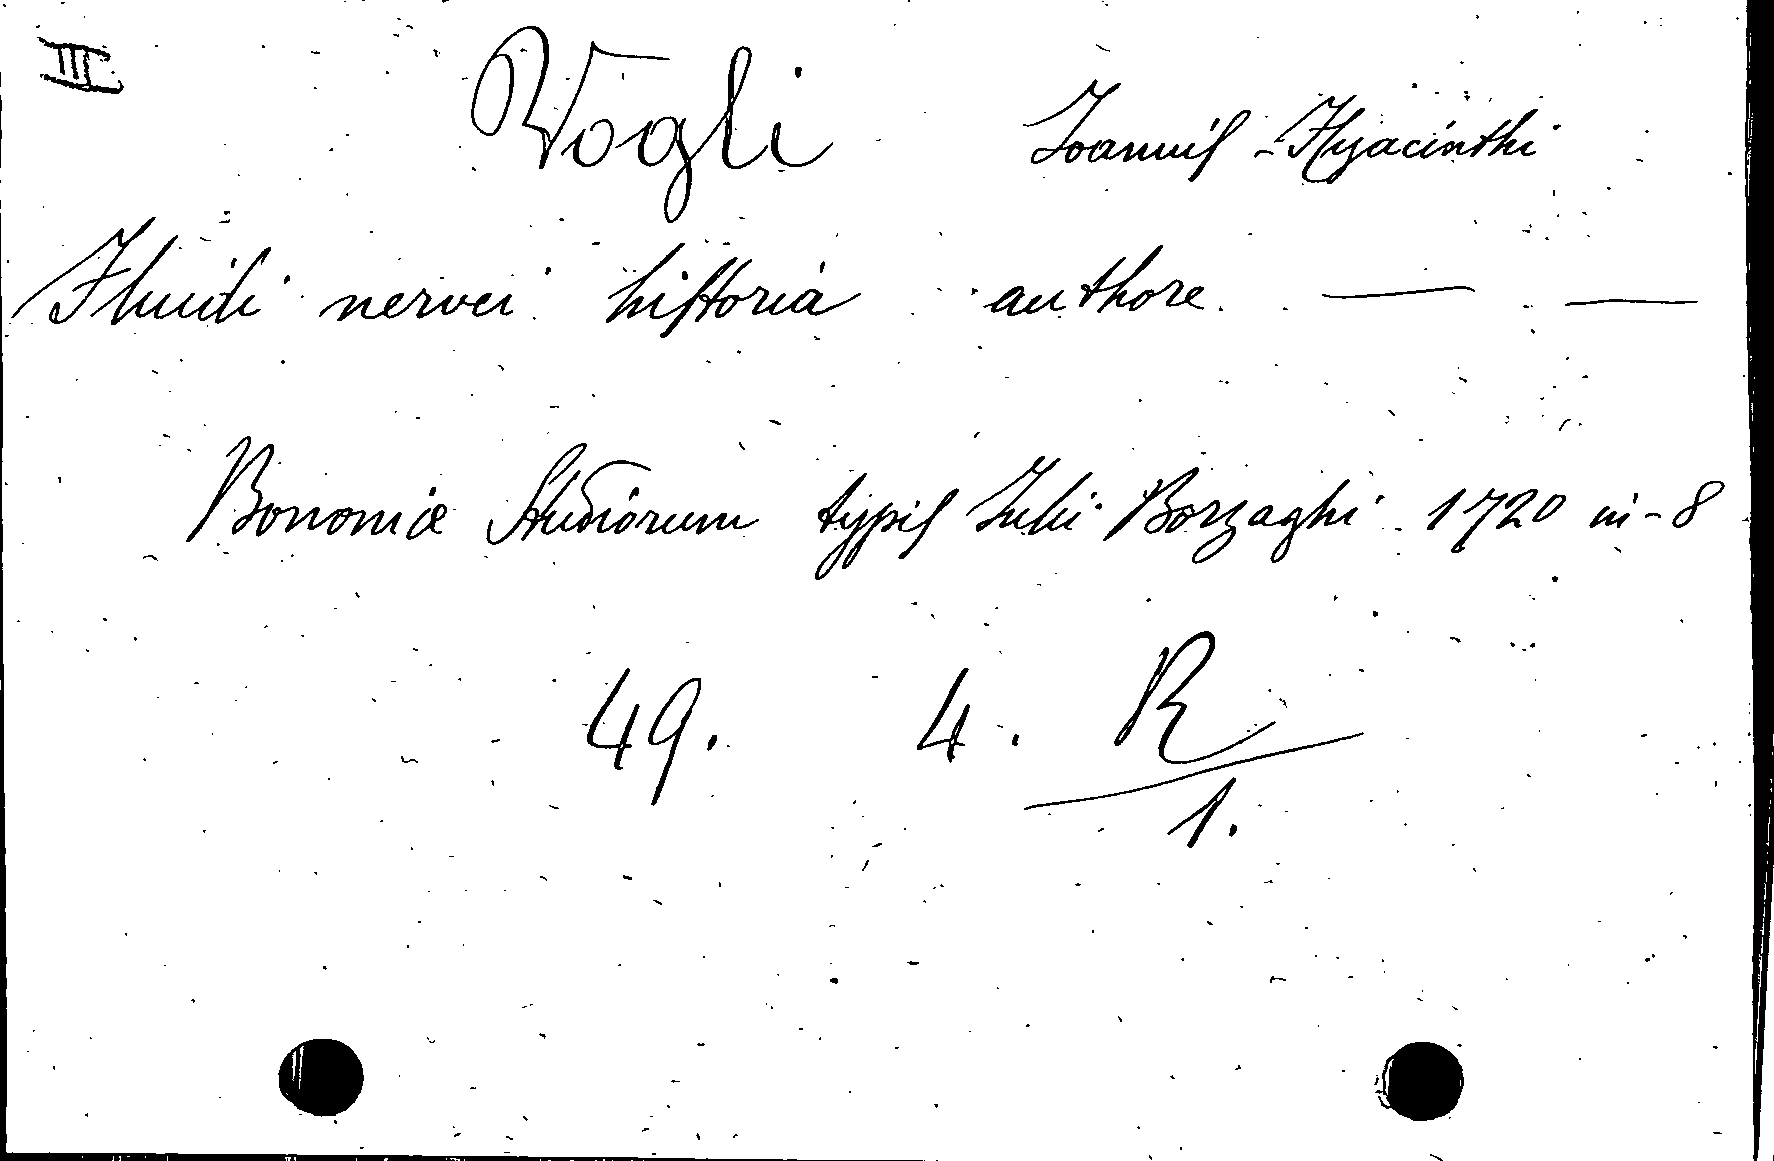 III
Vogli Joannis-Hyacinthi
Fluidi nervei historia authore — —
Bononiæ Studiorum typis Julii Borzaghi 1720 in-8
49. 4. R
1.